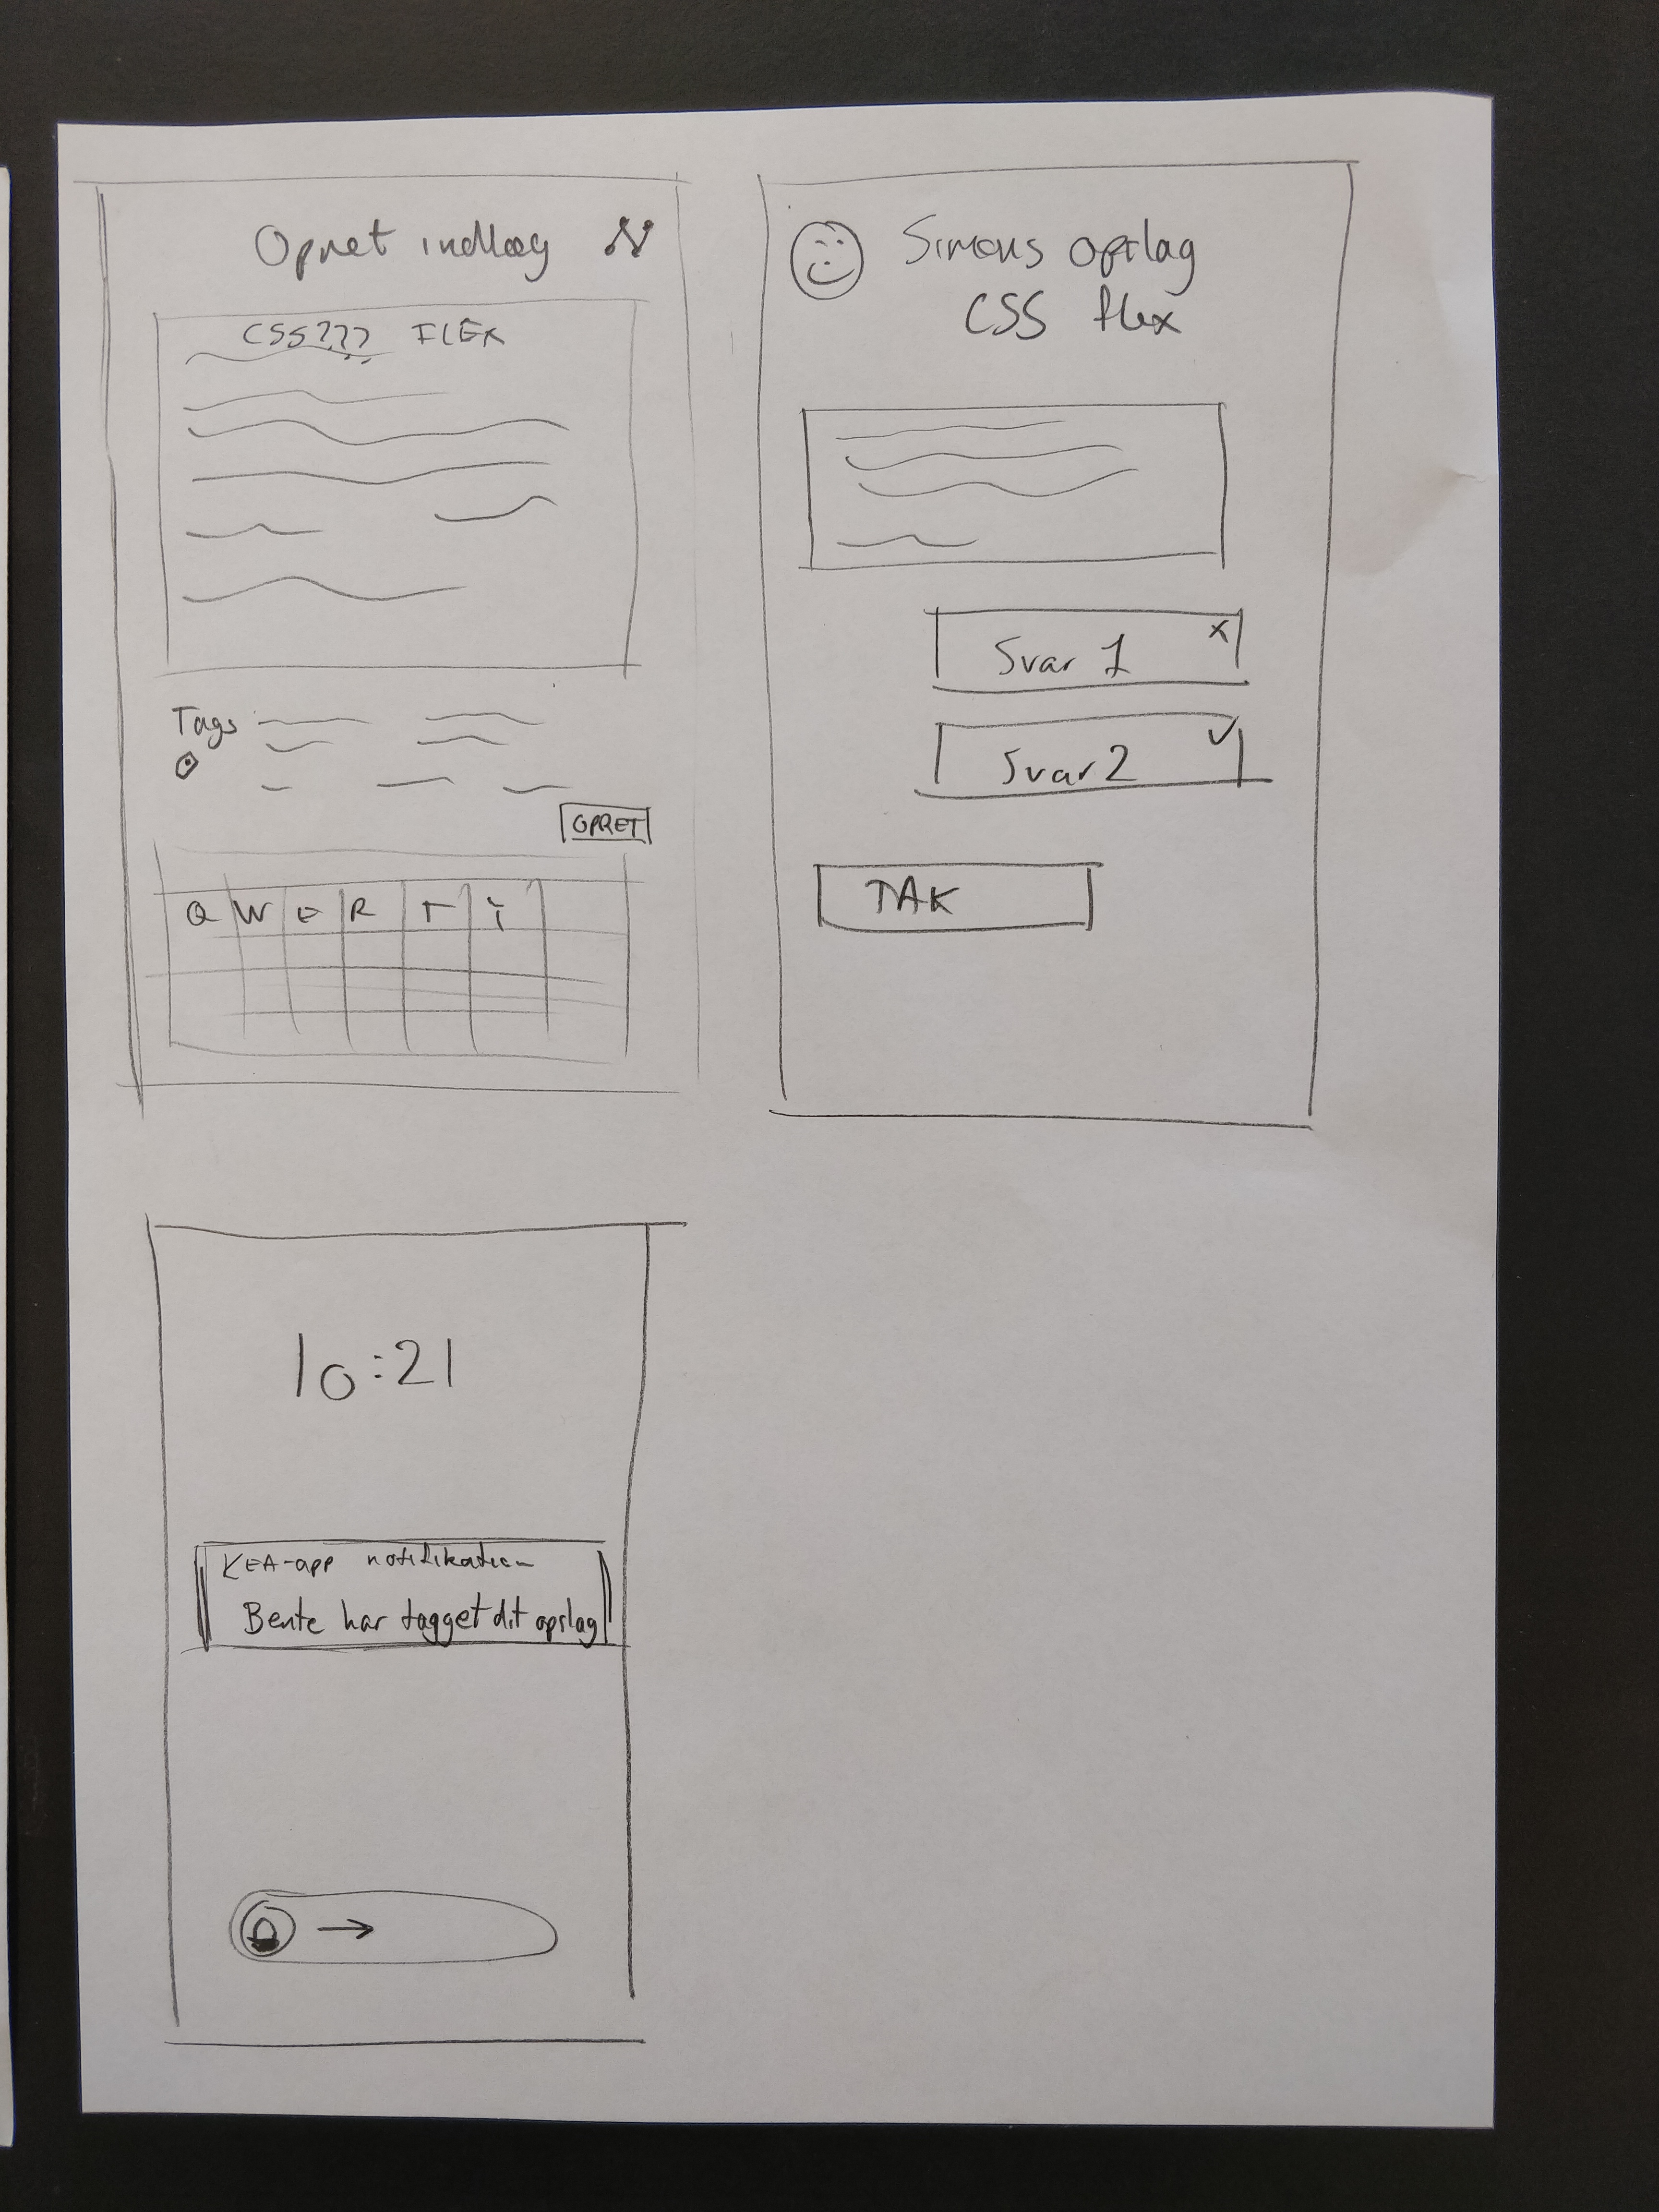 Opret indlæg
CSS??? FLEX
Tags
OPRET
Q W E R T Y
Simons opslag
CSS flex
Svar 1 x
Svar 2 ✓
TAK
10:21
KEA-app notifikation
Bente har tagget dit opslag